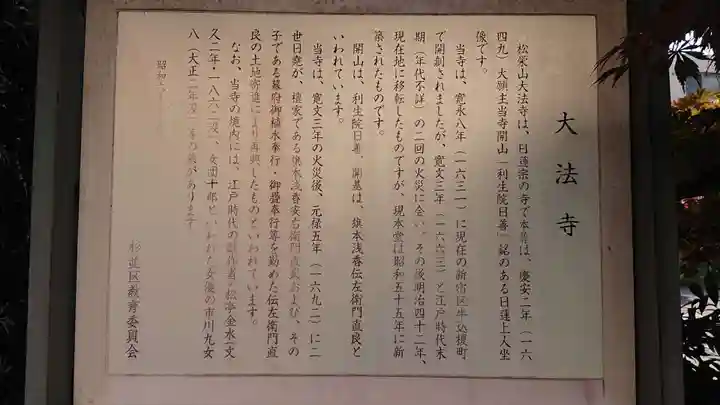 大法寺
松栄山大法寺は、日蓮宗の寺で本尊は、慶安二年（一六
四九）大願主当寺開山「利生院日善」銘のある日蓮上人坐
像です。
当寺は、寛永八年（一六三一）に現在の新宿区牛込榎町
で開創されましたが、寛文三年（一六六三）と江戸時代末
期（年代不詳）の二回の火災に会い、その後明治四十二年、
現在地に移転したものですが、現本堂は昭和五十五年に新
築されたものです。
開山は、利生院日善、開基は、旗本浅香伝左衛門直良と
いわれています。
当寺は、寛文三年の火災後、元禄五年（一六九二）に二
世日堯が、檀家である旗本浅香安右衛門直哀および、その
子である幕府御植木奉行・御畳奉行等を勤めた伝左衛門直
良の土地寄進により再興したものといわれています。
なお、当寺の境内には、江戸時代の戯作者・松亭金水（文
久二年・一八六二没）、女団十郎といわれた女優の市川九女
八（大正二年没）等の墓があります
昭和
杉並区教育委員会